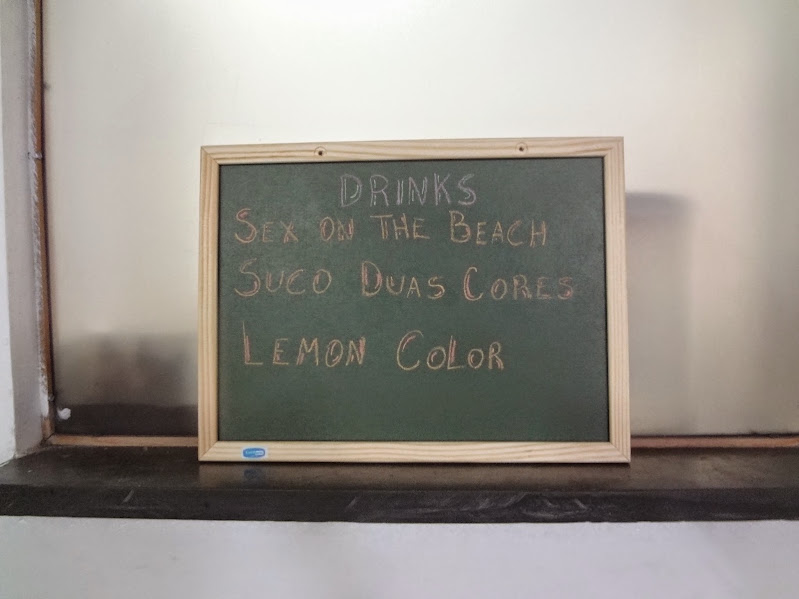 DRINKS
SEX ON THE BEACH
SUCO DUAS CORES
LEMON COLOR